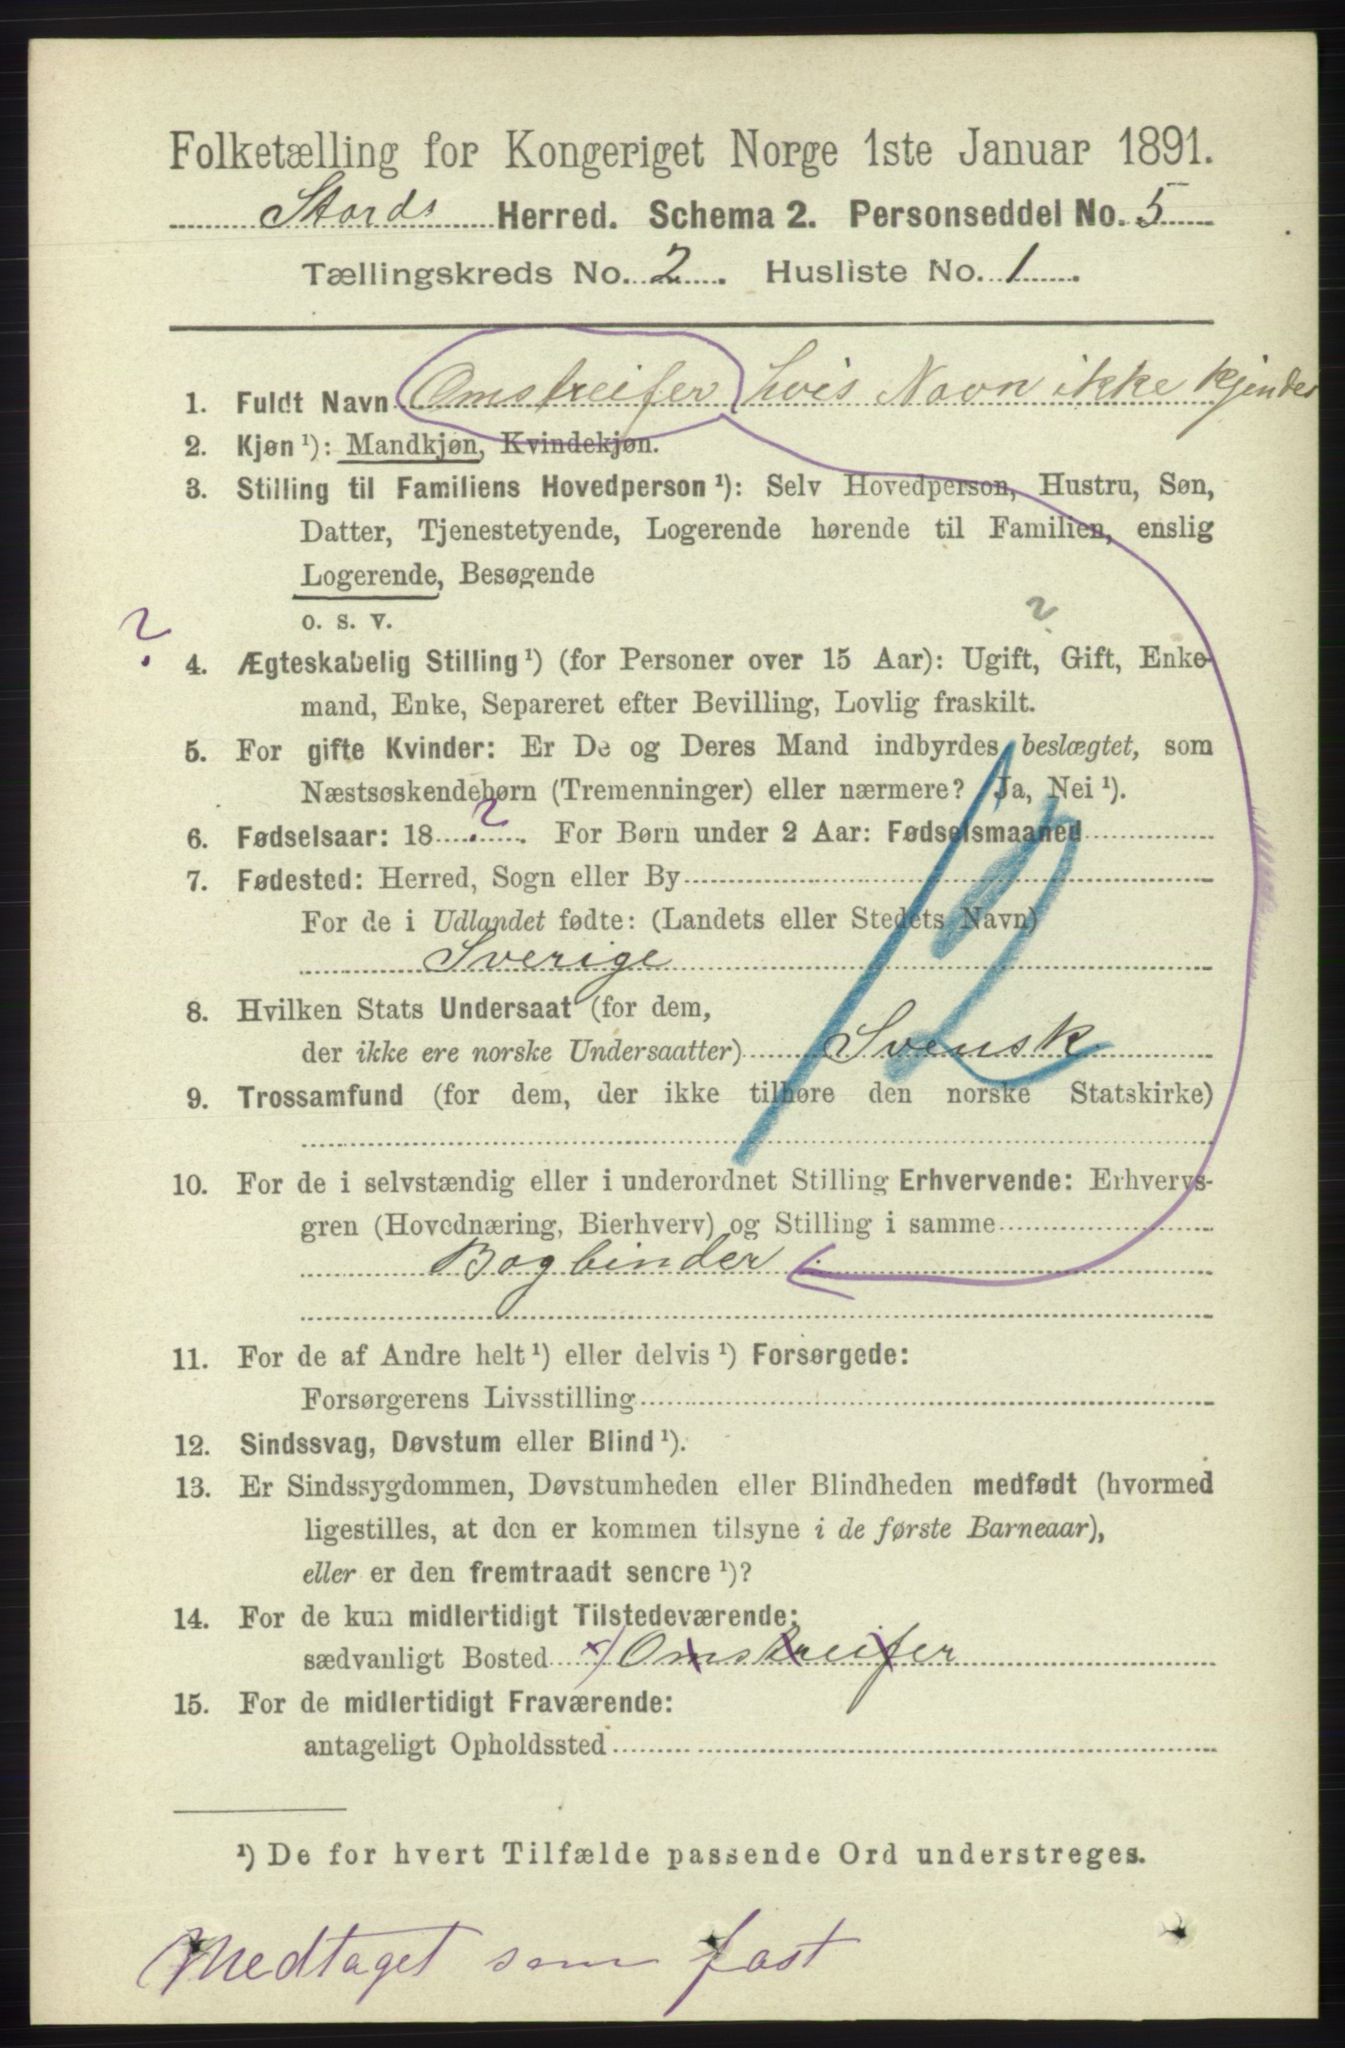 Folketælling for Kongeriget Norge 1ste Januar 1891.
Stords Herred. Schema 2. Personseddel No. 5
Tællingskreds No. 2. Husliste No. 1.
1. Fuldt Navn Omstreifer hvis Navn ikke kjendes
2. Kjøn ¹): Mandkjøn, Kvindekjøn.
3. Stilling til Familiens Hovedperson ¹): Selv Hovedperson, Hustru, Søn,
Datter, Tjenestetyende, Logerende hørende til Familien, enslig
Logerende, Besøgende
o. s. v.
?
?
4. Ægteskabelig Stilling ¹) (for Personer over 15 Aar): Ugift, Gift, Enke-
mand, Enke, Separeret efter Bevilling, Lovlig fraskilt.
5. For gifte Kvinder: Er De og Deres Mand indbyrdes beslægtet, som
Næstsøskendebørn (Tremenninger) eller nærmere? Ja, Nei ¹).
6. Fødselsaar: 18 ? . For Børn under 2 Aar: Fødselsmaaned
7. Fødested: Herred, Sogn eller By
For de i Udlandet fødte: (Landets eller Stedets Navn)
Sverige
8. Hvilken Stats Undersaat (for dem,
der ikke ere norske Undersaatter) Svensk
9. Trossamfund (for dem, der ikke tilhøre den norske Statskirke)
10. For de i selvstændig eller i underordnet Stilling Erhvervende: Erhvervs-
gren (Hovednæring, Bierhverv) og Stilling i samme
Bogbinder
11. For de af Andre helt ¹) eller delvis ¹) Forsørgede:
Forsørgerens Livsstilling
12. Sindssvag, Døvstum eller Blind ¹).
13. Er Sindssygdommen, Døvstumheden eller Blindheden medfødt (hvormed
ligestilles, at den er kommen tilsyne i de første Barneaar),
eller er den fremtraadt senere ¹)?
14. For de kun midlertidigt Tilstedeværende:
sædvanligt Bosted ×) Omstreifer
15. For de midlertidigt Fraværende:
antageligt Opholdssted
¹) De for hvert Tilfælde passende Ord understreges.
Medtaget som fast